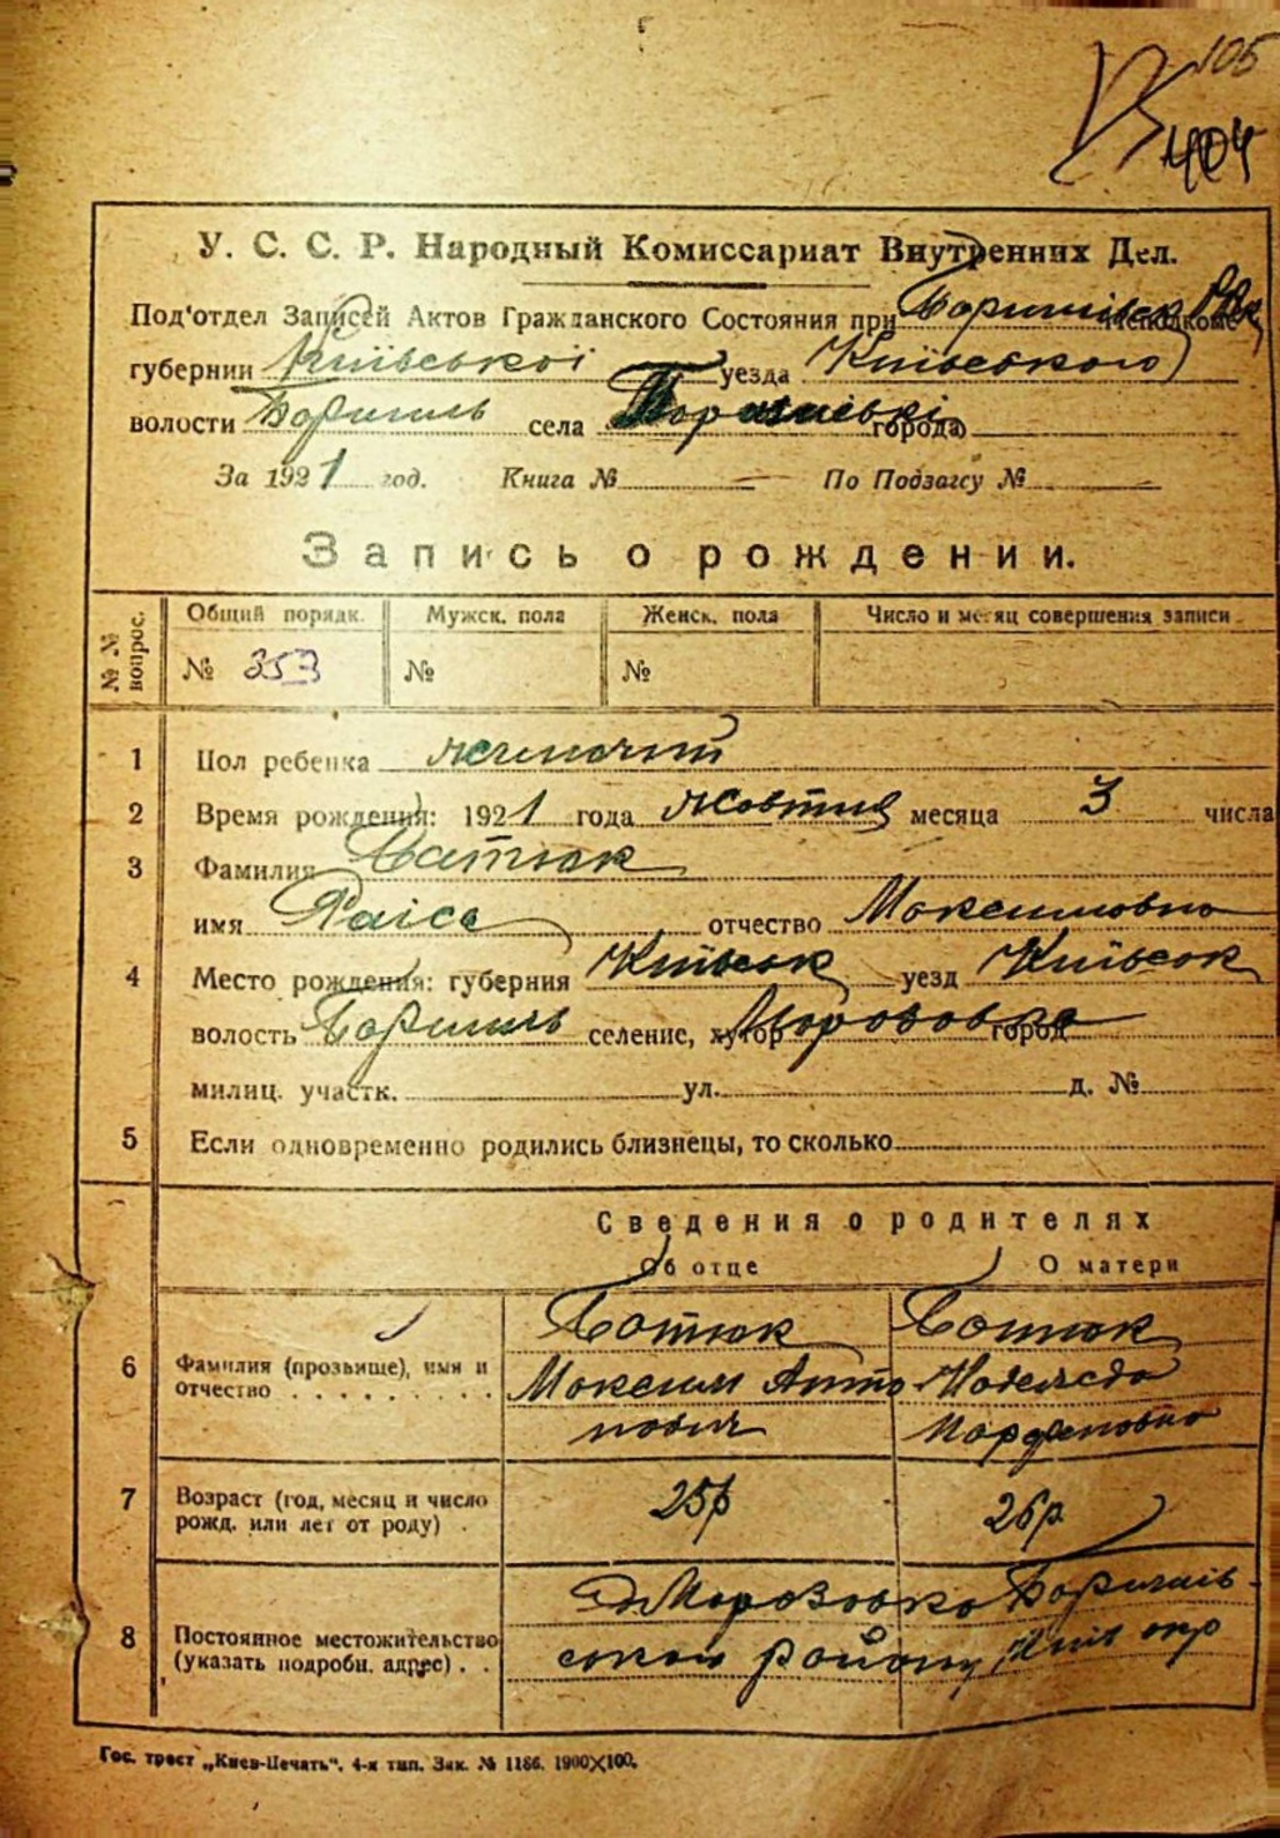 105
404
У. С. С. Р. Народный Комиссариат Внутренних Дел.
Под'отдел Записей Актов Гражданского Состояния при исполкоме
губернии Київської уезда Київського
волости Баришпіль села города
За 1921 год. Книга № По Подзагсу №
Запись о рождении.
№№ вопрос.
Общий порядк. Мужск. пола Женск. пола Число и месяц совершения записи
№ 353 № №
1 Пол ребенка жіночий
2 Время рождения: 1921 года жовтня месяца 3 числа
3 Фамилия Батюк
имя Раіса отчество Максимовна
4 Место рождения: губерния Київськ уезд Київськ
волость селение, хутор город
милиц. участк. ул. д. №
5 Если одновременно родились близнецы, то сколько
Сведения о родителях
Об отце О матери
6 Фамилия (прозвище), имя и отчество Батюк Батюк
Максим Анто Надежда
нович
7 Возраст (год, месяц и число рожд. или лет от роду) 25р 26р
8 Постоянное местожительство (указать подробн. адрес) району окр
Гос. трест „Киев-Печать". 4-я тип. Зак. № 1186. 1900×100.